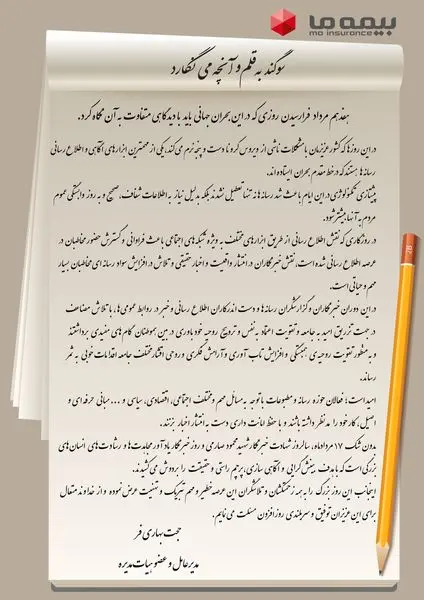 بیمه ما
ma insurance
سوگند به قلم و آنچه می نگارد
هفدهم مرداد فرارسیدن روزی که در این بحران جهانی باید با دیدگاهی متفاوت به آن نگاه کرد.
در این روزها که کشور عزیزمان با مشکلات ناشی از ویروس کرونا دست و پنجه نرم می کند، یکی از مهمترین ابزارهای آگاهی و اطلاع رسانی
رسانه ها هستند که در خط مقدم بحران ایستاده اند.
پیشتازی تکنولوژی در این ایام باعث شد رسانه ها نه تنها تعطیل نشدند بلکه به دلیل نیاز به اطلاعات شفاف، صحیح و به روز وابستگی عموم
مردم به آنها بیشتر شود.
در روزگاری که نقش اطلاع رسانی از طریق ابزارهای مختلف به ویژه شبکه های اجتماعی باعث فراوانی و گسترش حضور مخاطبان در
عرصه اطلاع رسانی شده است، نقش خبرنگاران در انتشار واقعیت و اخبار حقیقی و تلاش در افزایش سواد رسانه ای مخاطبان بسیار
مهم و حیاتی است.
در این دوران خبرنگاران و گزارشگران رسانه ها و دست اندرکاران اطلاع رسانی و خبر در روابط عمومی ها، با تلاش مضاعف
در جهت تزریق امید به جامعه و تقویت اعتماد به نفس و ترویج روحیه خودباوری در بین هموطنان گام های مفیدی برداشتند
و به منظور تقویت روحیه ی همبستگی و افزایش تاب آوری و آرامش فکری و روحی اقشار مختلف جامعه اقدامات خوبی به ثمر
رساندند.
امید است؛ فعالان حوزه رسانه و مطبوعات با توجه به مسائل مهم و مختلف اجتماعی، اقتصادی، سیاسی و ... مبانی حرفه ای و
اصیل، کار خود را مدنظر داشته باشند و با حفظ امانت داری دست به انتشار اخبار بزنند.
بدون شک ۱۷ مردادماه، سالروز شهادت خبرنگار شهید محمود صارمی و روز خبرنگار یادآور مجاهدت ها و رشادت های انسان های
بزرگی است که با هدف بینش گرایی و آگاهی سازی، پرچم راستی و حقیقت را بر دوش می کشیدند.
اینجانب این روز بزرگ را به همه زحمتکشان و تلاشگران این عرصه خطیر و مهم تبریک و تهنیت عرض نموده و از خداوند متعال
برای این عزیزان توفیق و سربلندی روزافزون مسئلت می نمایم.
حجت بهاری فر
مدیرعامل و عضو هیات مدیره
2B